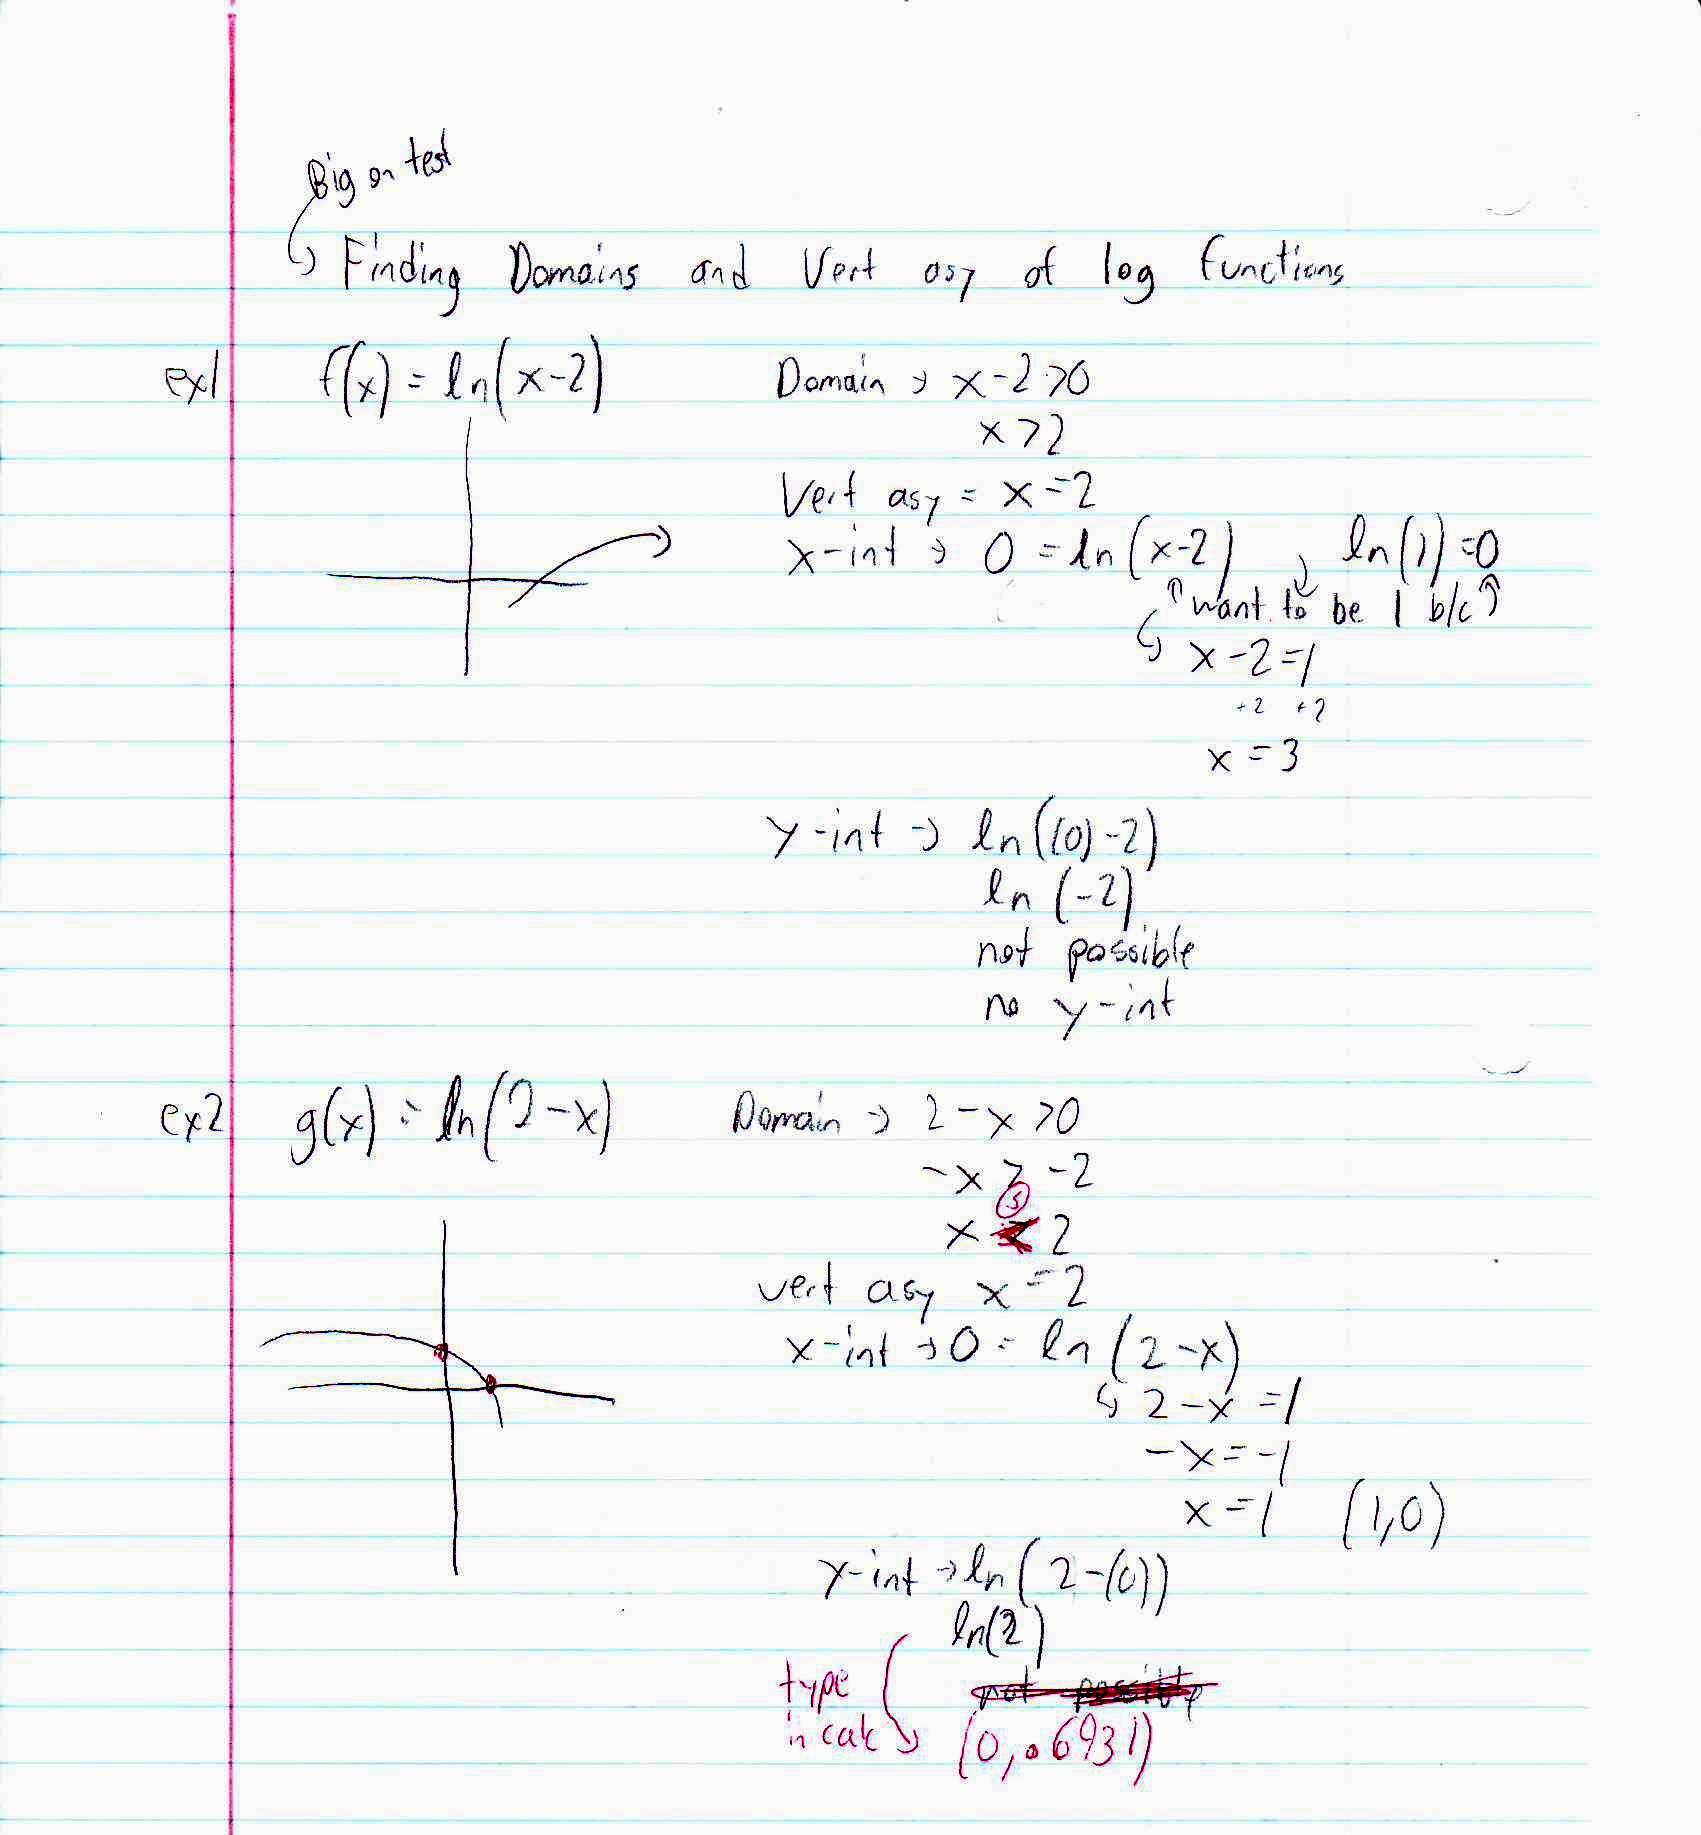 Big on test
↳ Finding Domains and Vert asy of log functions
ex1 f(x) = ln(x-2) Domain → x-2>0
x>2
Vert asy = x=2
x-int → 0 = ln(x-2) , ln(1)=0
↑ want to be 1 b/c ↑
↳ x-2=1
+2 +2
x=3
y-int → ln((0)-2)
ln(-2)
not possible
no y-int
ex2 g(x) = ln(2-x) Domain → 2-x>0
-x > -2
x < 2
vert asy x=2
x-int → 0 = ln(2-x)
↳ 2-x=1
-x=-1
x=1 (1,0)
y-int → ln(2-(0))
ln(2)
not possible
type in calc → (0, .6931)